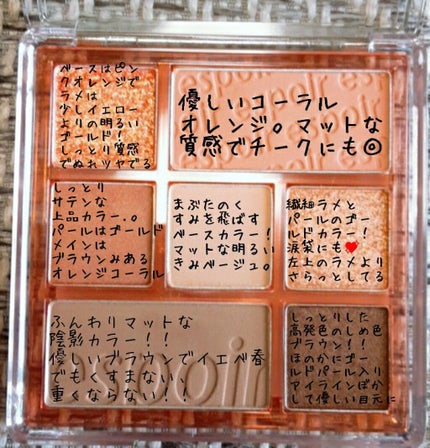 ベースはピン
クオレンジで
ラメは
少しイエロー
よりの明るい
ゴールド!
しっとり質感
でぬれツヤでる
優しいコーラル
オレンジ。マットな
質感でチークにも◎
しっとり
サテンな
上品カラー。。
パールはゴールド
メインは
ブラウンみある
オレンジコーラル
まぶたのく
すみを飛ばす
ベースカラー!
マットな明るい
きみベージュ。
繊細ラメと
パールのゴー
ルドカラー!
涙袋にも❤
左上のラメより
さらっとしてる
ふんわりマットな
陰影カラー!!
優しいブラウンでイエベ春
でもくすまない、
重くならない!!
espoir
しっとりした
高発色のしめ色
ブラウン!!
ほのかにゴー
ルドパール入り
アイラインぼか
して優しい目元に